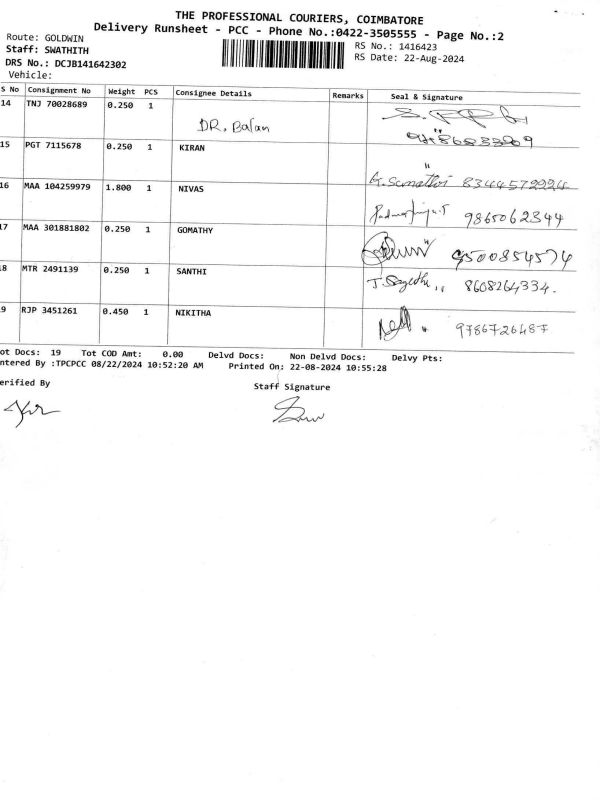 THE PROFESSIONAL COURIERS, COIMBATORE
Delivery Runsheet - PCC - Phone No.:0422-3505555 - Page No.:2
Route: GOLDWIN
RS No.: 1416423
Staff: SWATHITH
RS Date: 22-Aug-2024
DRS No.: DCJB141642302
Vehicle:
S No Consignment No Weight PCS Consignee Details Remarks Seal & Signature
14 TNJ 70028689 0.250 1
DR. Balan
15 PGT 7115678 0.250 1 KIRAN
8344572224
16 MAA 104259979 1.800 1 NIVAS
9865062344
17 MAA 301881802 0.250 1 GOMATHY
9500854574
18 MTR 2491139 0.250 1 SANTHI
8608264334.
9 RJP 3451261 0.450 1 NIKITHA
9786726487
ot Docs: 19 Tot COD Amt: 0.00 Delvd Docs: Non Delvd Docs: Delvy Pts:
ntered By :TPCPCC 08/22/2024 10:52:20 AM Printed On: 22-08-2024 10:55:28
erified By Staff Signature